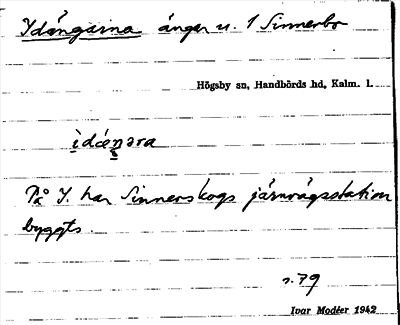 Ydängarna ängar u. 1 Sinnerbo
Högsby sn, Handbörds hd, Kalm. l.
ìdǽŋəra
På Y. har Sinnerskogs järnvägsstation
byggts.
s. 79
Ivar Modéer 1942